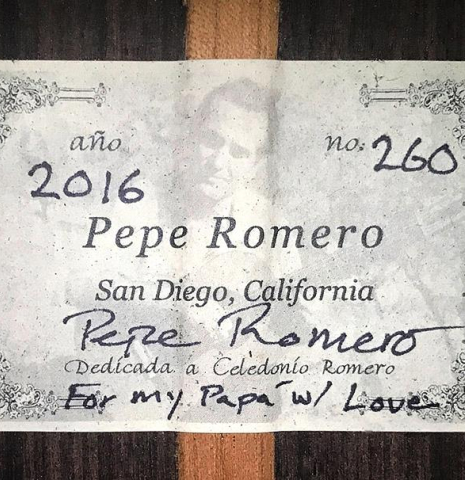 año no: 260
2016
Pepe Romero
San Diego, California
Pepe Romero
Dedicada a Celedonio Romero
For my Papá w/ Love